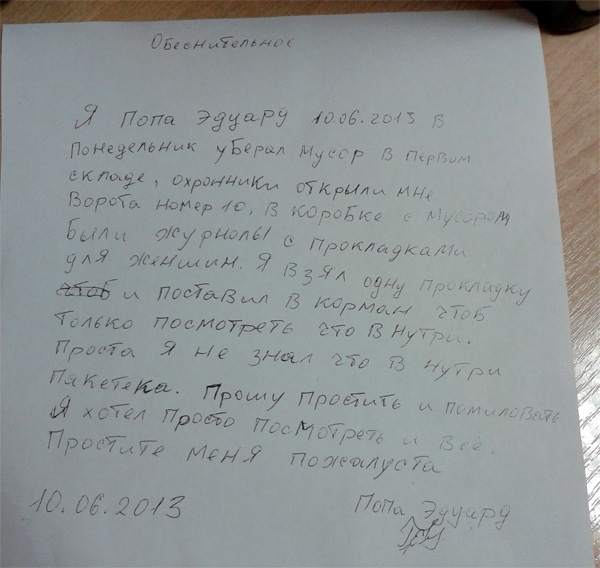 Обеснительное
Я Попа Эдуард 10.06.2013 в
понедельник уберал мусор в первом
складе, охронники открыли мне
ворота номер 10. В коробке с мусором
были журнолы с прокладками
для женшин. Я взял одну прокладку
чтоб и поставил в корман чтоб
только посмотреть что в нутри.
Проста я не знал что в нутри
пакетека. Прошу простить и помиловать
Я хотел просто посмотреть и всё.
Простите меня пожалуста
10.06.2013 Попа Эдуард